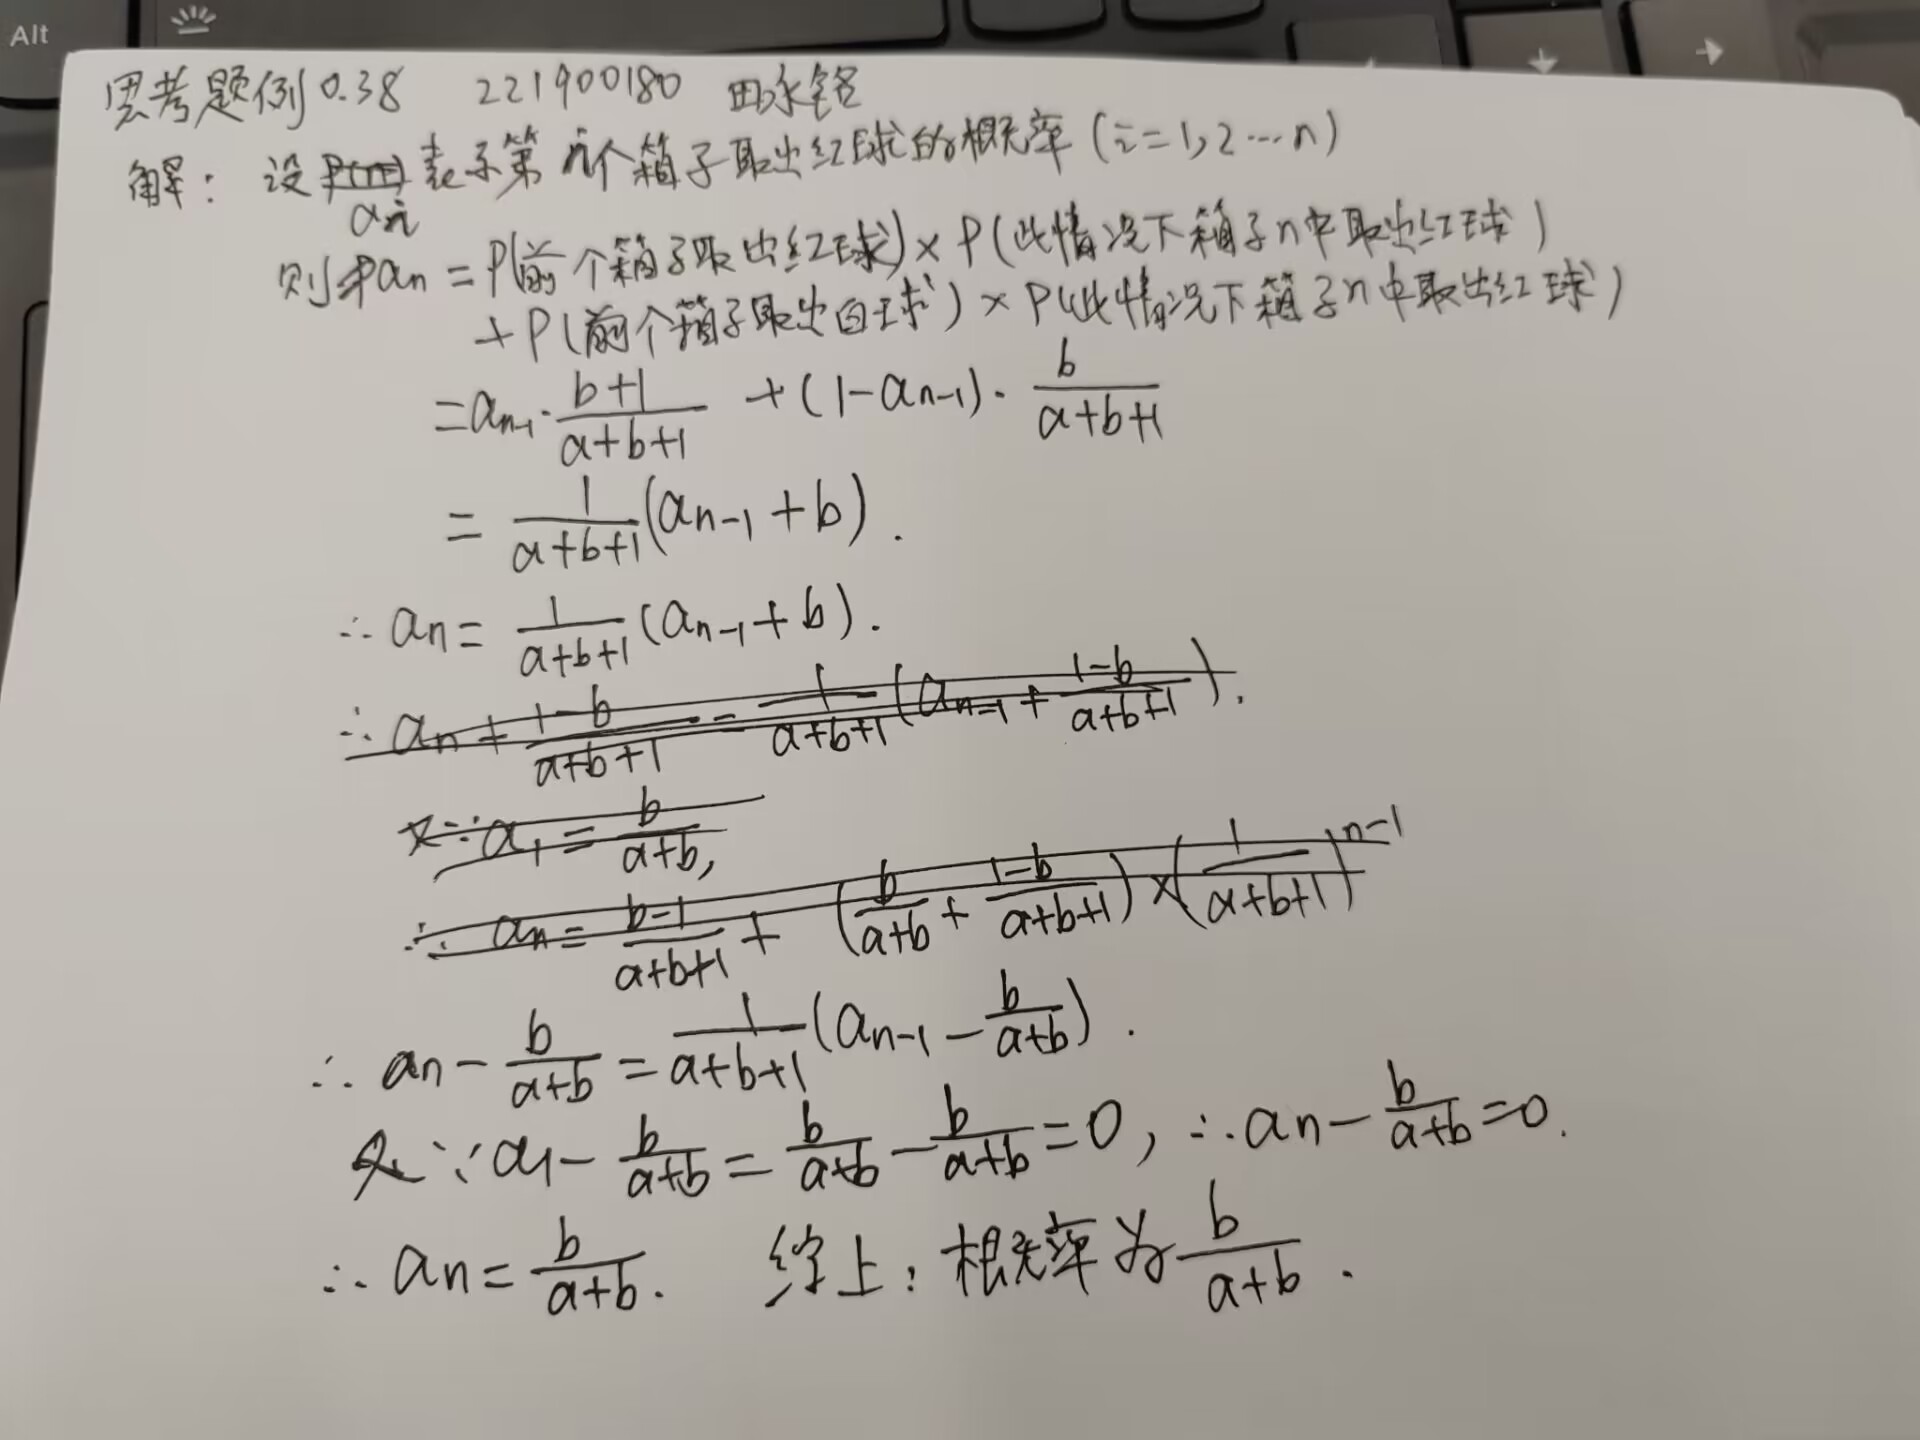 Alt
思考题例0.38 221900180 田永铭
解：设 a_i 表示第i个箱子取出红球的概率 (i=1,2…n)
则 a_n = P(前个箱子取出红球) × P(此情况下箱子n中取出红球)
+ P(前个箱子取出白球) × P(此情况下箱子n中取出红球)
= a_{n-1}·\frac{b+1}{a+b+1} + (1-a_{n-1})·\frac{b}{a+b+1}
= \frac{1}{a+b+1}(a_{n-1}+b).
∴ a_n = \frac{1}{a+b+1}(a_{n-1}+b).
∴ a_n + \frac{1-b}{a+b+1} = \frac{1}{a+b+1}(a_{n-1}+\frac{1-b}{a+b+1}).
又∵ a_1 = \frac{b}{a+b},
∴ a_n = \frac{b-1}{a+b+1} + (\frac{b}{a+b}+\frac{1-b}{a+b+1})×(\frac{1}{a+b+1})^{n-1}
∴ a_n - \frac{b}{a+b} = \frac{1}{a+b+1}(a_{n-1}-\frac{b}{a+b}).
又∵ a_1 - \frac{b}{a+b} = \frac{b}{a+b} - \frac{b}{a+b} = 0, ∴ a_n - \frac{b}{a+b} = 0.
∴ a_n = \frac{b}{a+b}. 综上：概率为 \frac{b}{a+b}.